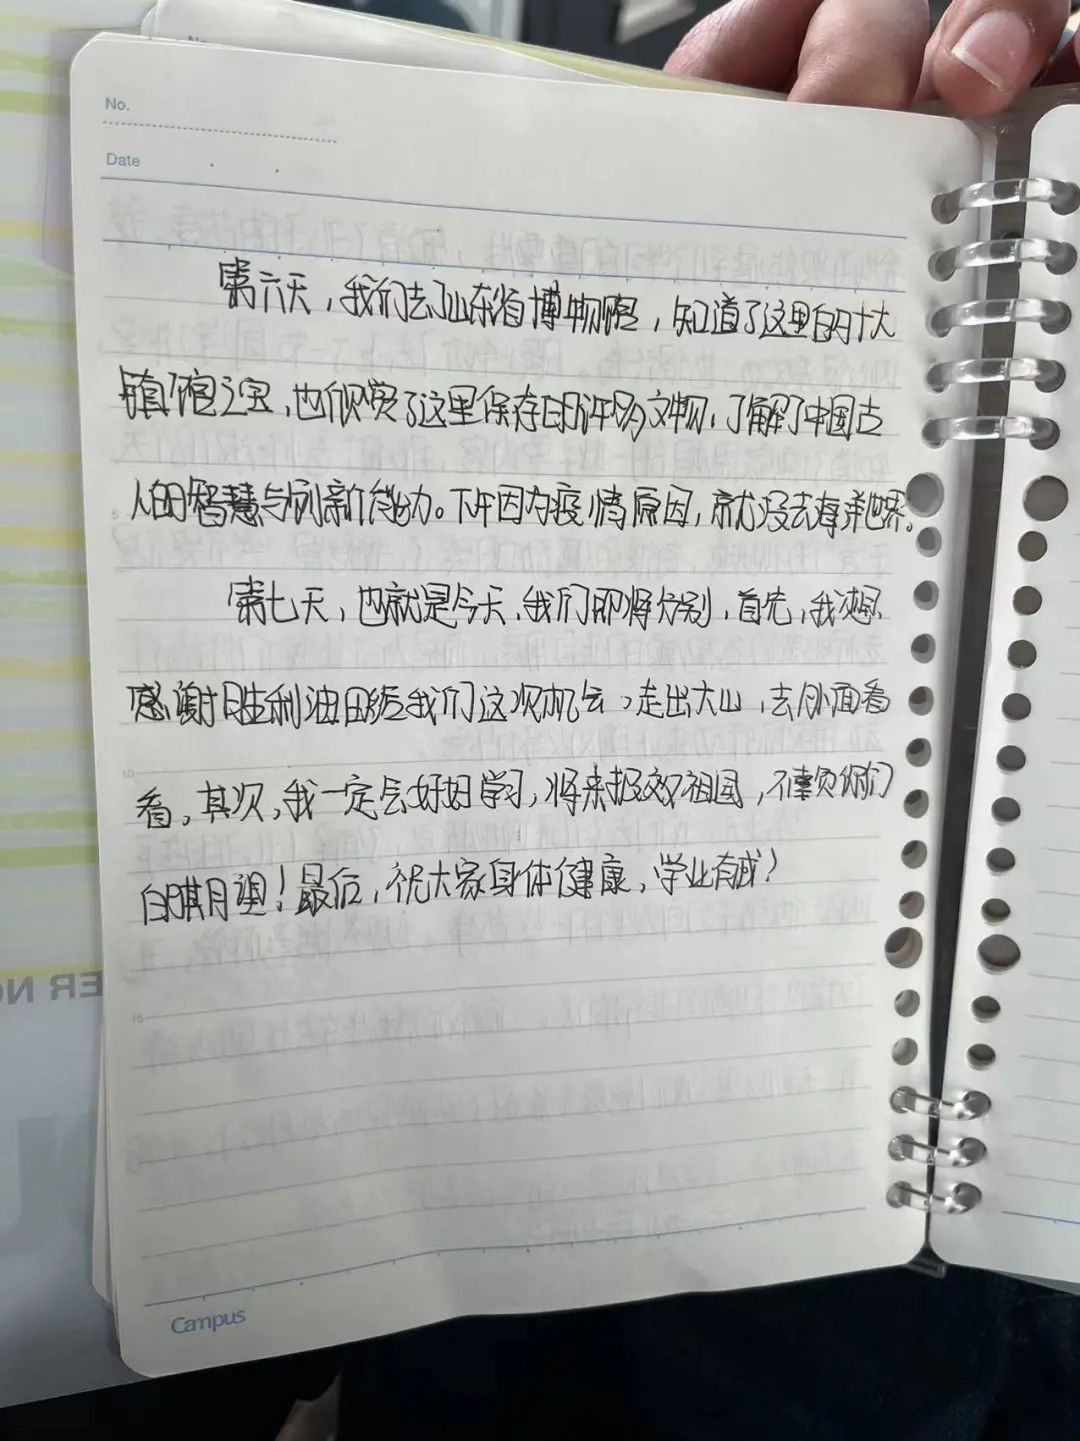 No.
Date
第六天，我们去了山东省博物馆，知道了这里的十大
镇馆之宝，也欣赏了这里保存的许多文物，了解了中国古
人的智慧与创新能力。下午因为疫情原因，就没去海洋世界。
第七天，也就是今天，我们即将分别，首先，我想
感谢胜利油田给我们这次机会，走出大山，去外面看
看，其次，我一定会好好学习，将来报效祖国，不辜负你们
的期望！最后，祝大家身体健康，学业有成！
5
10
15
Campus